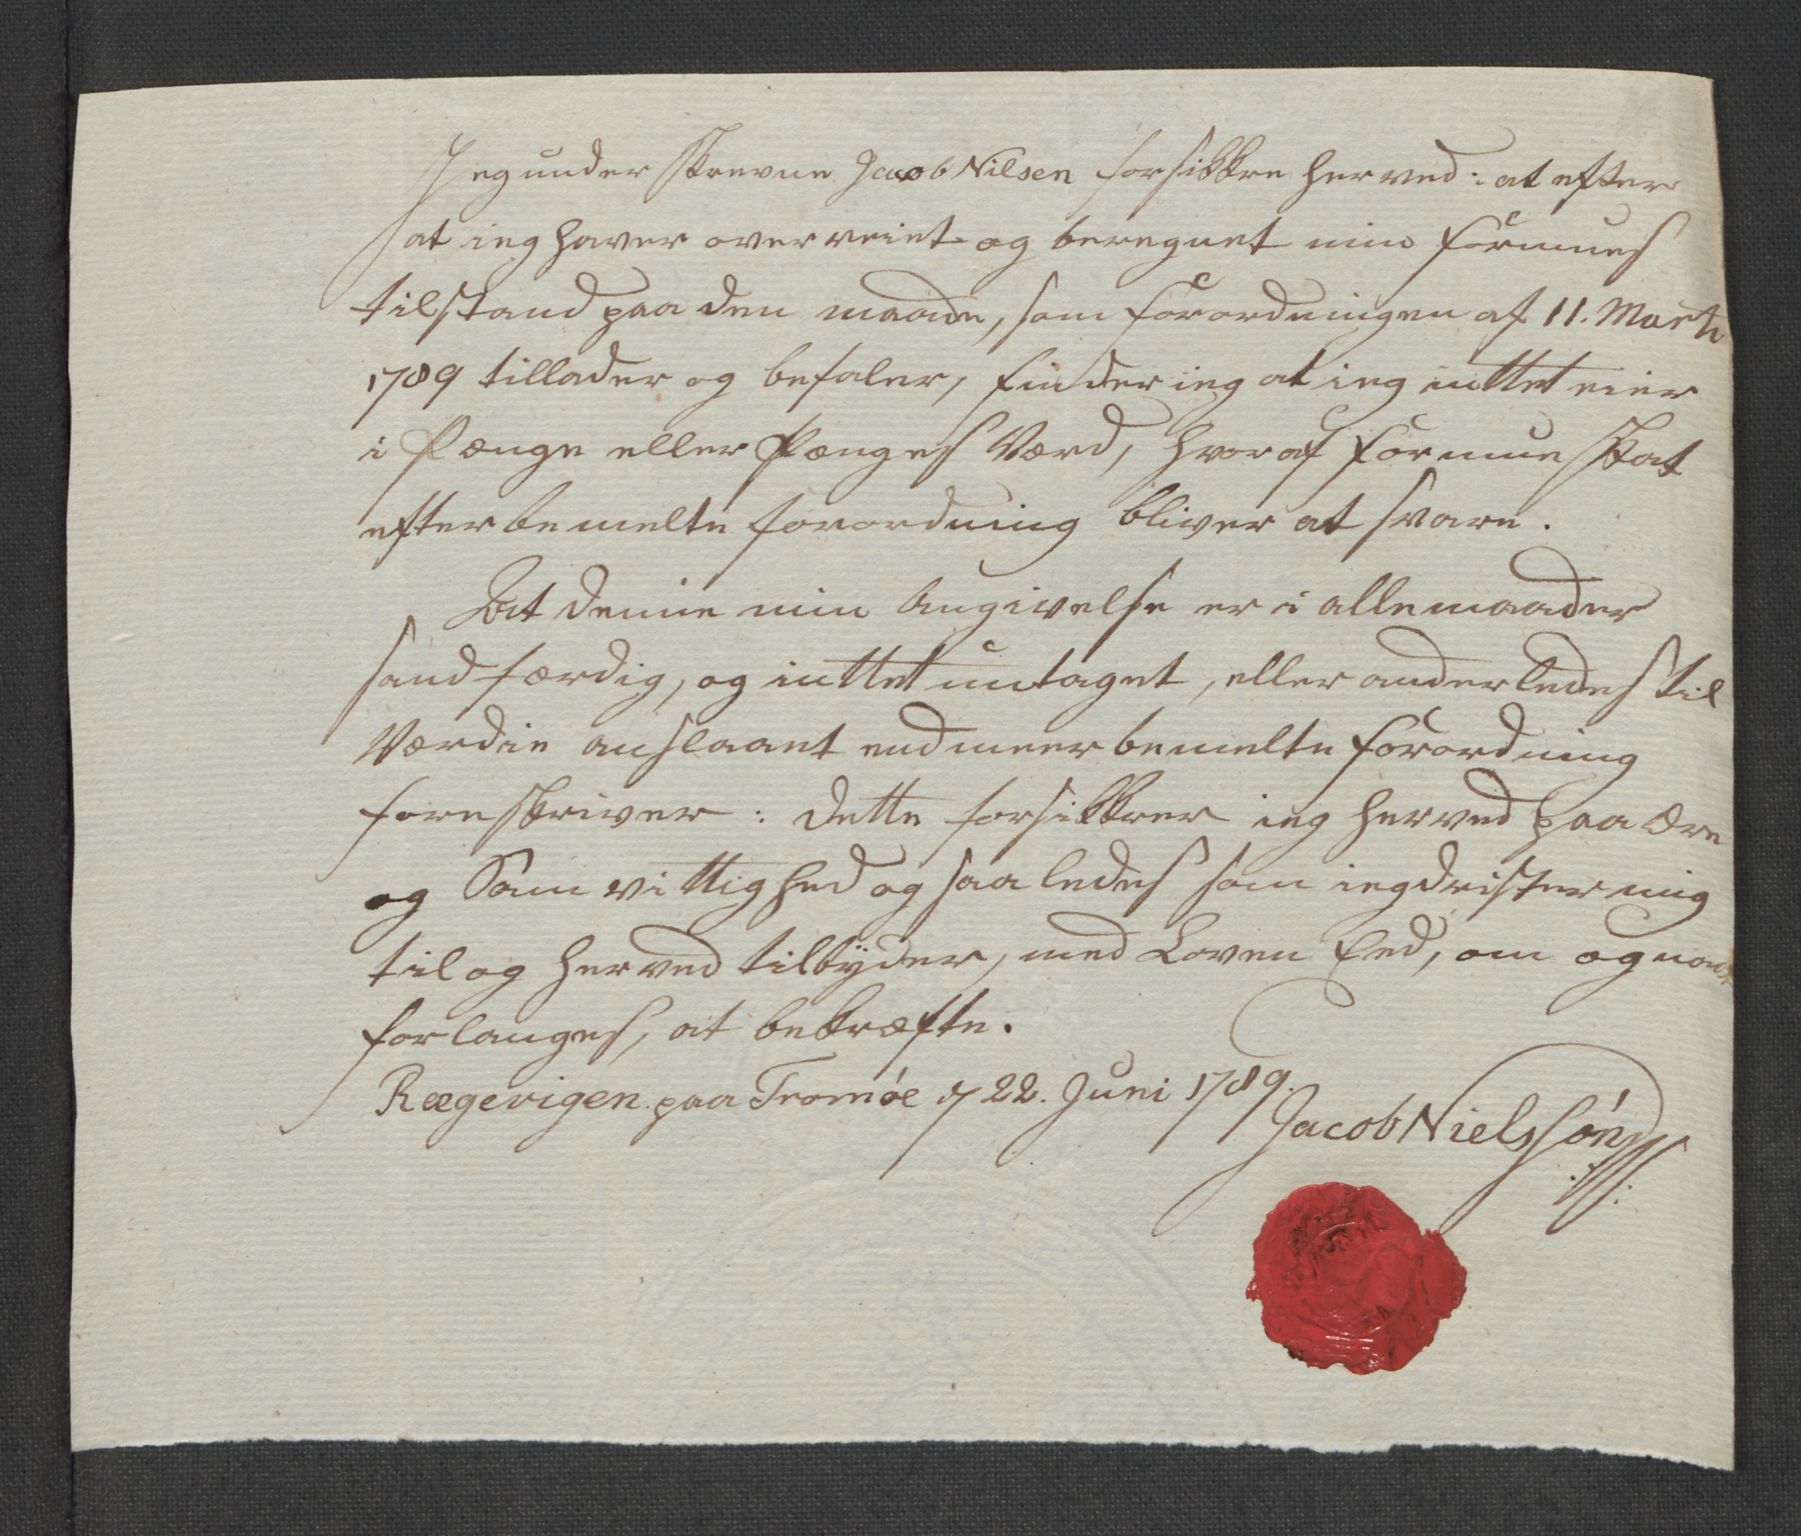 Jeg underskrevne Jacob Nilsen forsikkre herved: at efter
at ieg haver overveiet og beregnet min Formues
tilstand paa den maade, som Forordningen af 11. Marti
1789 tillader og befaler, finder ieg at ieg inttet eier
i Pænge eller Pænges Værd, hvoraf Formue Skat
efter bemelte forordning bliver at svare.
At denne min Angivelse er i alle maader
sandfærdig, og inttet untaget, eller anderledes til
Værdie anslaaet end meerbemelte Forordning
foreskriver: dette forsikkrer ieg herved paa Ære
og Samvittighed og saaledes som ieg drister mig
til og herved tilbyder, med Loven Eed, om og naar
forlanges, at bekræfte.
Rægevigen paa Tromøe d 22. Juni 1789.
Jacob Nielssøn